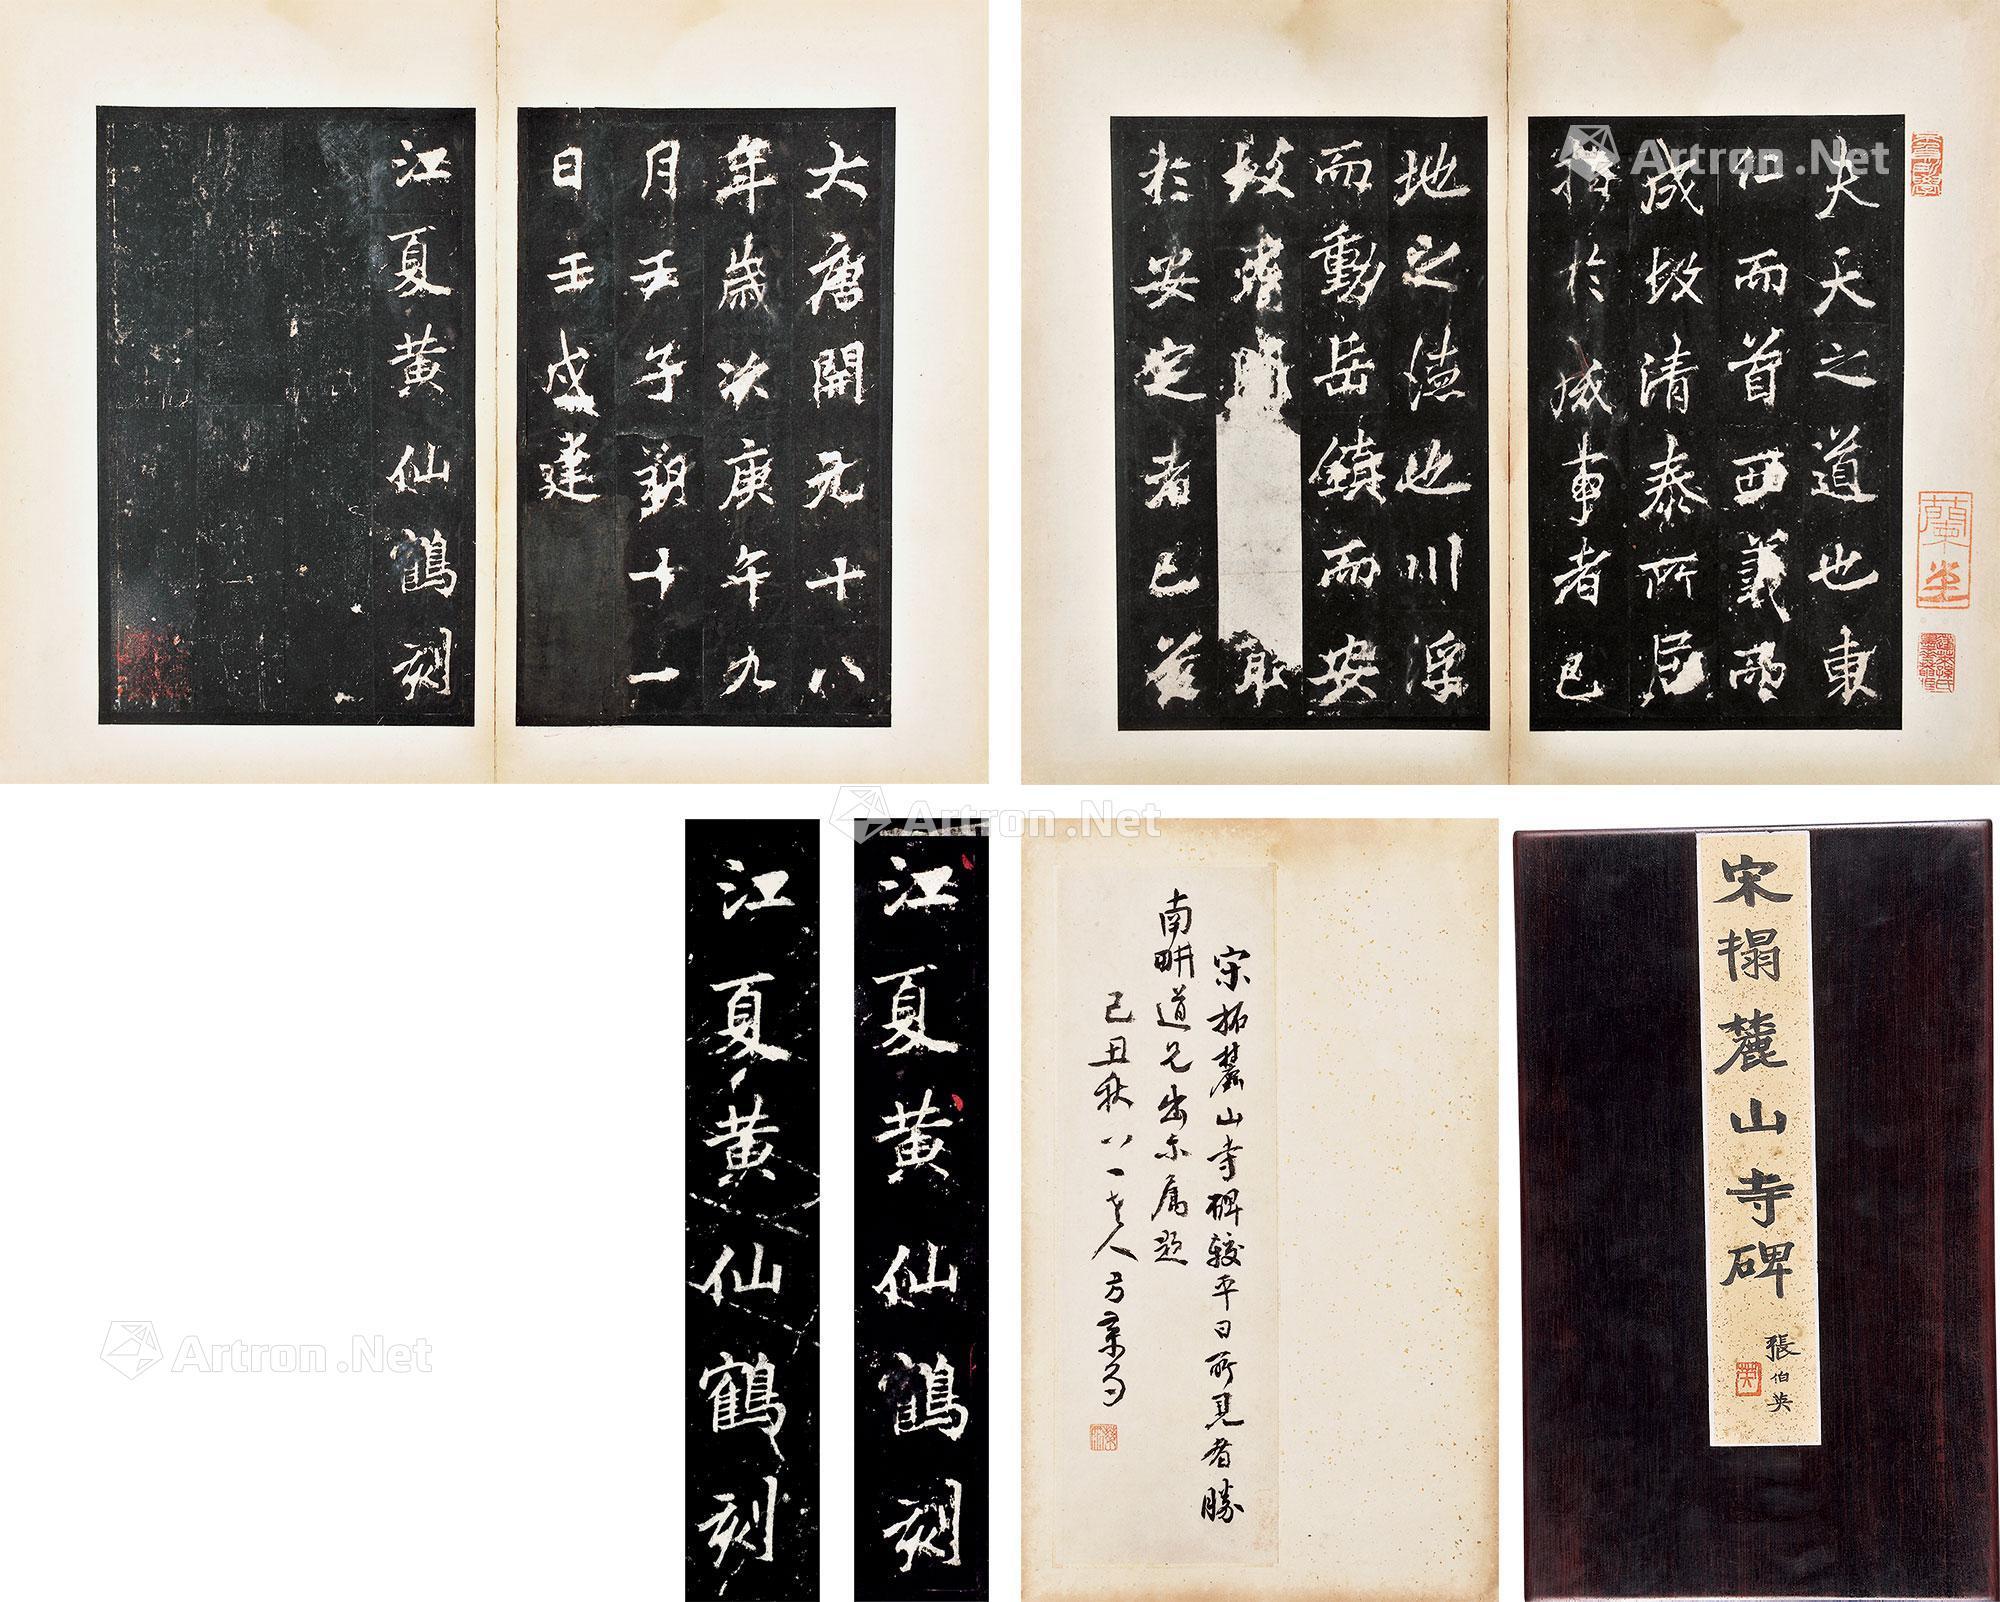 大唐開元十八
年歲次庚午九
月壬子朔十一
日壬戌建
江夏黃仙鶴刻
夫天之道也東
仁而首西義而
成故清泰所居
指於成事者已
地之德也川浮
而動岳鎮而安
故
取
於安定者已茲
江夏黃仙鶴刻
江夏黃仙鶴刻
宋拓麓山寺碑較平日所見者勝
南畊道兄出示属題
己丑秋八一老人方景
宋搨麓山寺碑
張伯英
英
Artron.Net
Artron.Net
Artron.Net